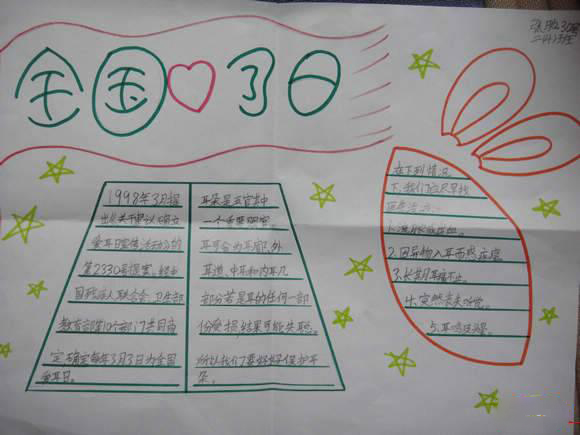 全国 了日
张
二(4)班
1998年3月提
出《关于确立
爱耳日宣传活动》的
第2330号提案,经
国残疾人联合会、卫生部
教育部等10个部门共同商
定,确定每年3月3日为全国
爱耳日。
耳朵是五官其中
一个重要器官。
耳可分为耳廓、外
耳道、中耳和内耳几
部分若是耳的任何一部
份受损,结果可能失聪。
所以我们要好好保护耳
朵。
在下列情况
下,我们应尽早找
医生
1.
2.因异物入耳而感症痛
3.长期耳痛不止。
4.突然丧失听觉。
5.耳鸣